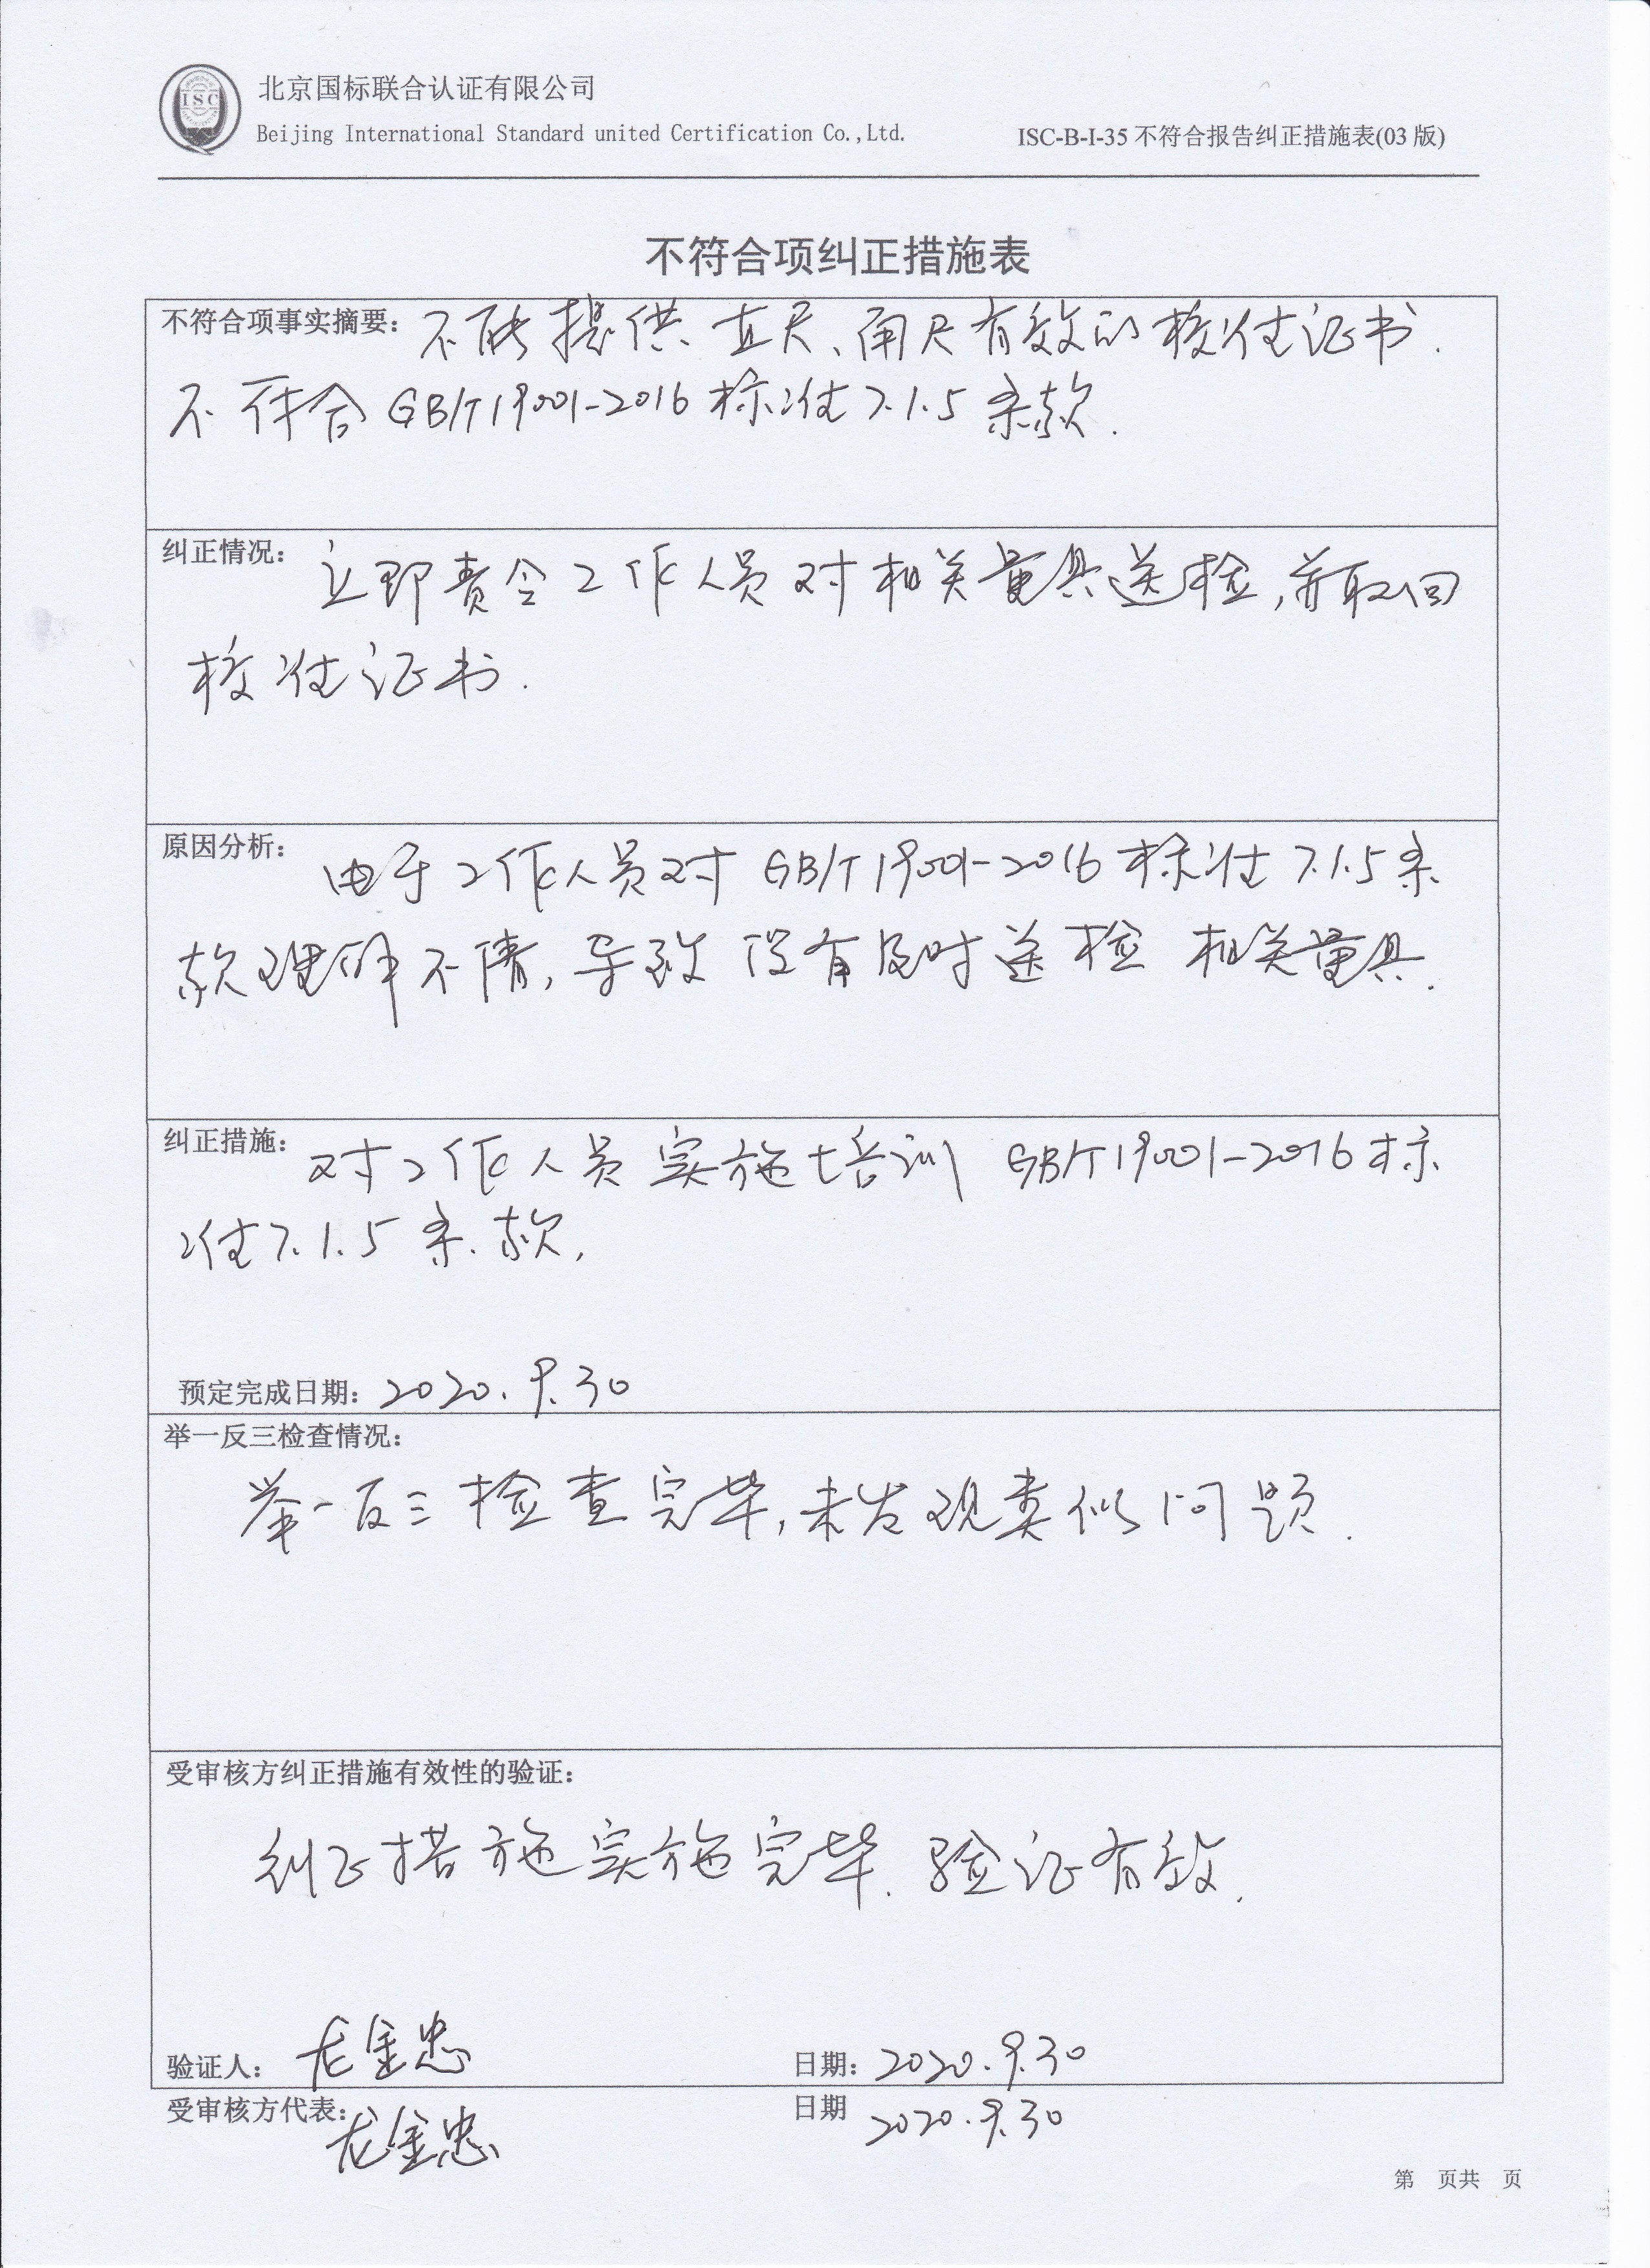 北京国标联合认证有限公司
Beijing International Standard united Certification Co.,Ltd.
ISC-B-I-35 不符合报告纠正措施表(03 版)
ISC
不符合项纠正措施表
不符合项事实摘要: 不能提供直尺、角尺有效的校准证书.
不符合 GB/T19001-2016 标准 7.1.5 条款.
纠正情况: 立即责令工作人员对相关量具送检,并取回
校准证书.
原因分析: 由于工作人员对 GB/T19001-2016 标准 7.1.5 条
款理解不清,导致没有及时送检相关量具.
纠正措施: 对工作人员实施培训 GB/T19001-2016 标
准 7.1.5 条款.
预定完成日期: 2020.9.30
举一反三检查情况:
举一反三检查完毕,未发现类似问题.
受审核方纠正措施有效性的验证:
纠正措施实施完毕.验证有效.
验证人: 龙金忠 日期: 2020.9.30
受审核方代表: 龙金忠 日期 2020.9.30
第 页共 页